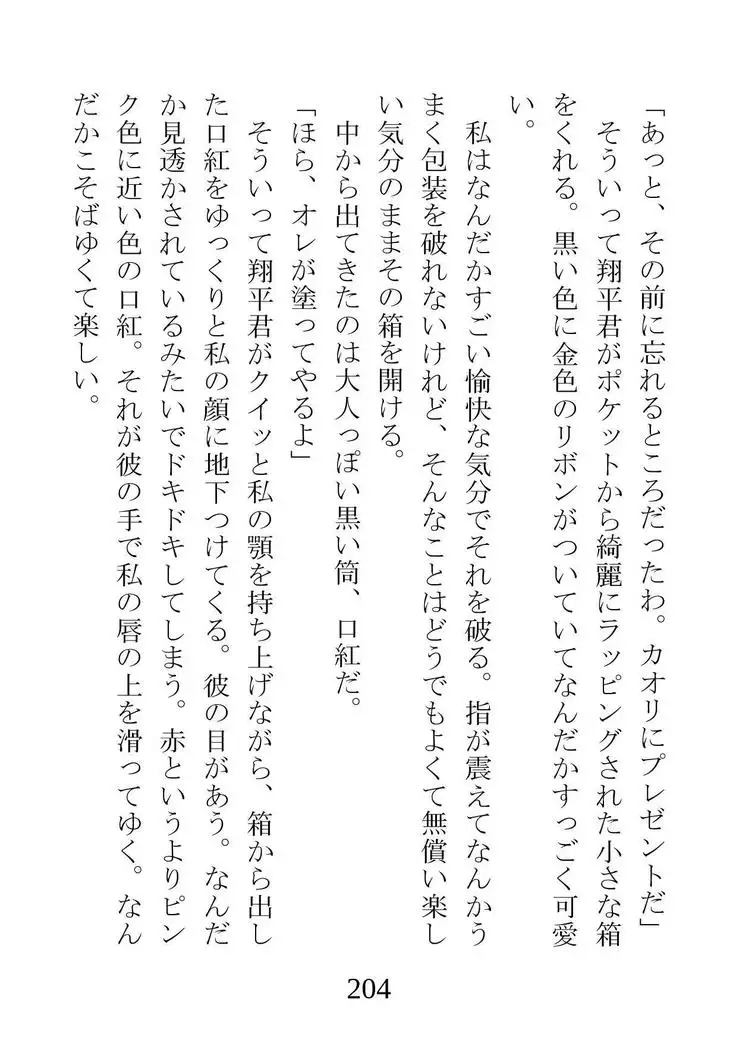 「あっと、その前に忘れるところだったわ。カオリにプレゼントだ」
　そういって翔平君がポケットから綺麗にラッピングされた小さな箱
をくれる。黒い色に金色のリボンがついていてなんだかすっごく可愛
い。
　私はなんだかすごい愉快な気分でそれを破る。指が震えてなんかう
まく包装を破れないけれど、そんなことはどうでもよくて無償い楽し
い気分のままその箱を開ける。
　中から出てきたのは大人っぽい黒い筒、口紅だ。
「ほら、オレが塗ってやるよ」
　そういって翔平君がクイッと私の顎を持ち上げながら、箱から出し
た口紅をゆっくりと私の顔に地下つけてくる。彼の目があう。なんだ
か見透かされているみたいでドキドキしてしまう。赤というよりピン
ク色に近い色の口紅。それが彼の手で私の唇の上を滑ってゆく。なん
だかこそばゆくて楽しい。
204